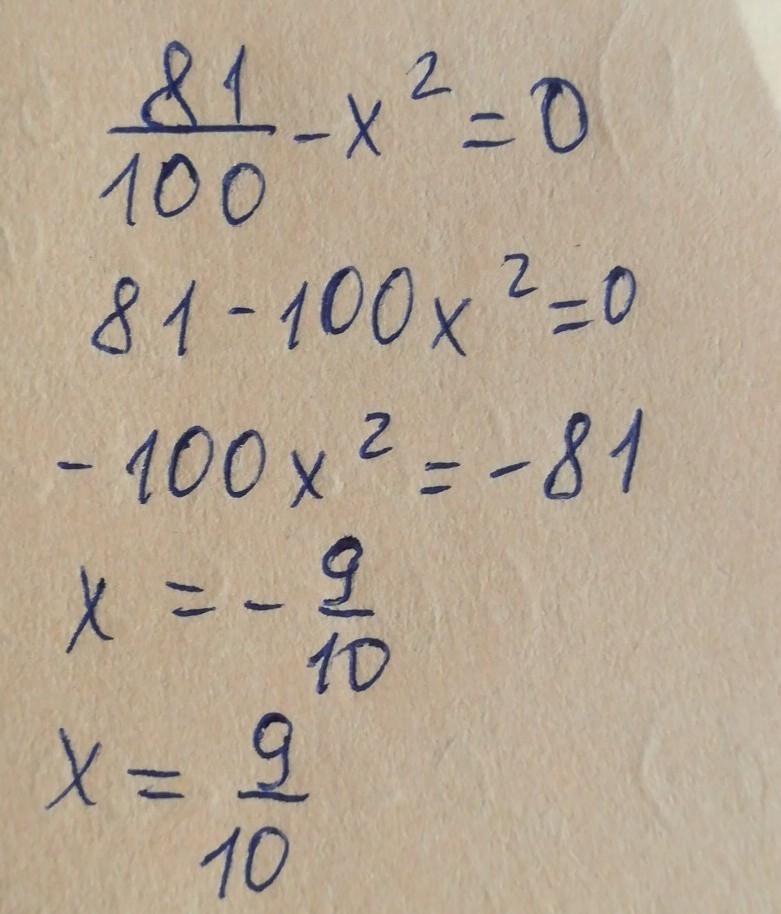 81/100 - x² = 0
81 - 100x² = 0
- 100x² = - 81
x = - 9/10
x = 9/10